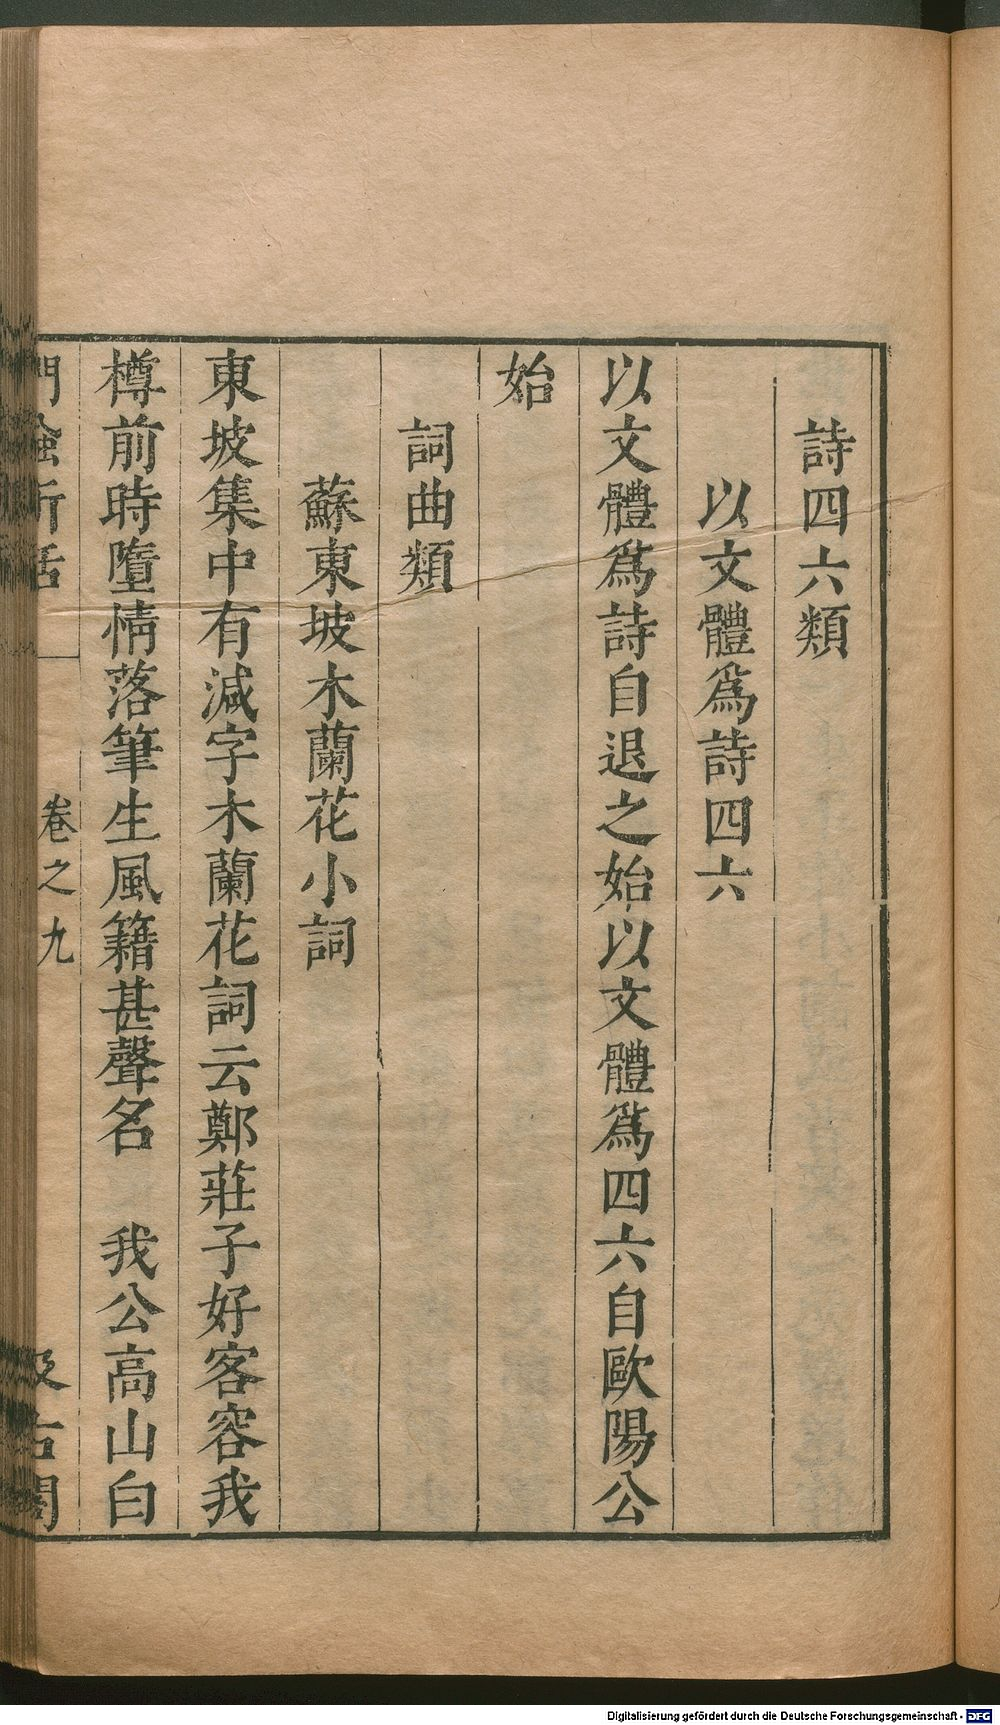 詩四六類
以文體爲詩四六
以文體爲詩自退之始以文體爲四六自歐陽公
始
詞曲類
蘇東坡木蘭花小詞
東坡集中有減字木蘭花詞云鄭莊子好客容我
樽前時墮情落筆生風籍甚聲名 我公高山白
門蝨新話 卷之九 汲古閣
Digitalisierung gefördert durch die Deutsche Forschungsgemeinschaft - DFG